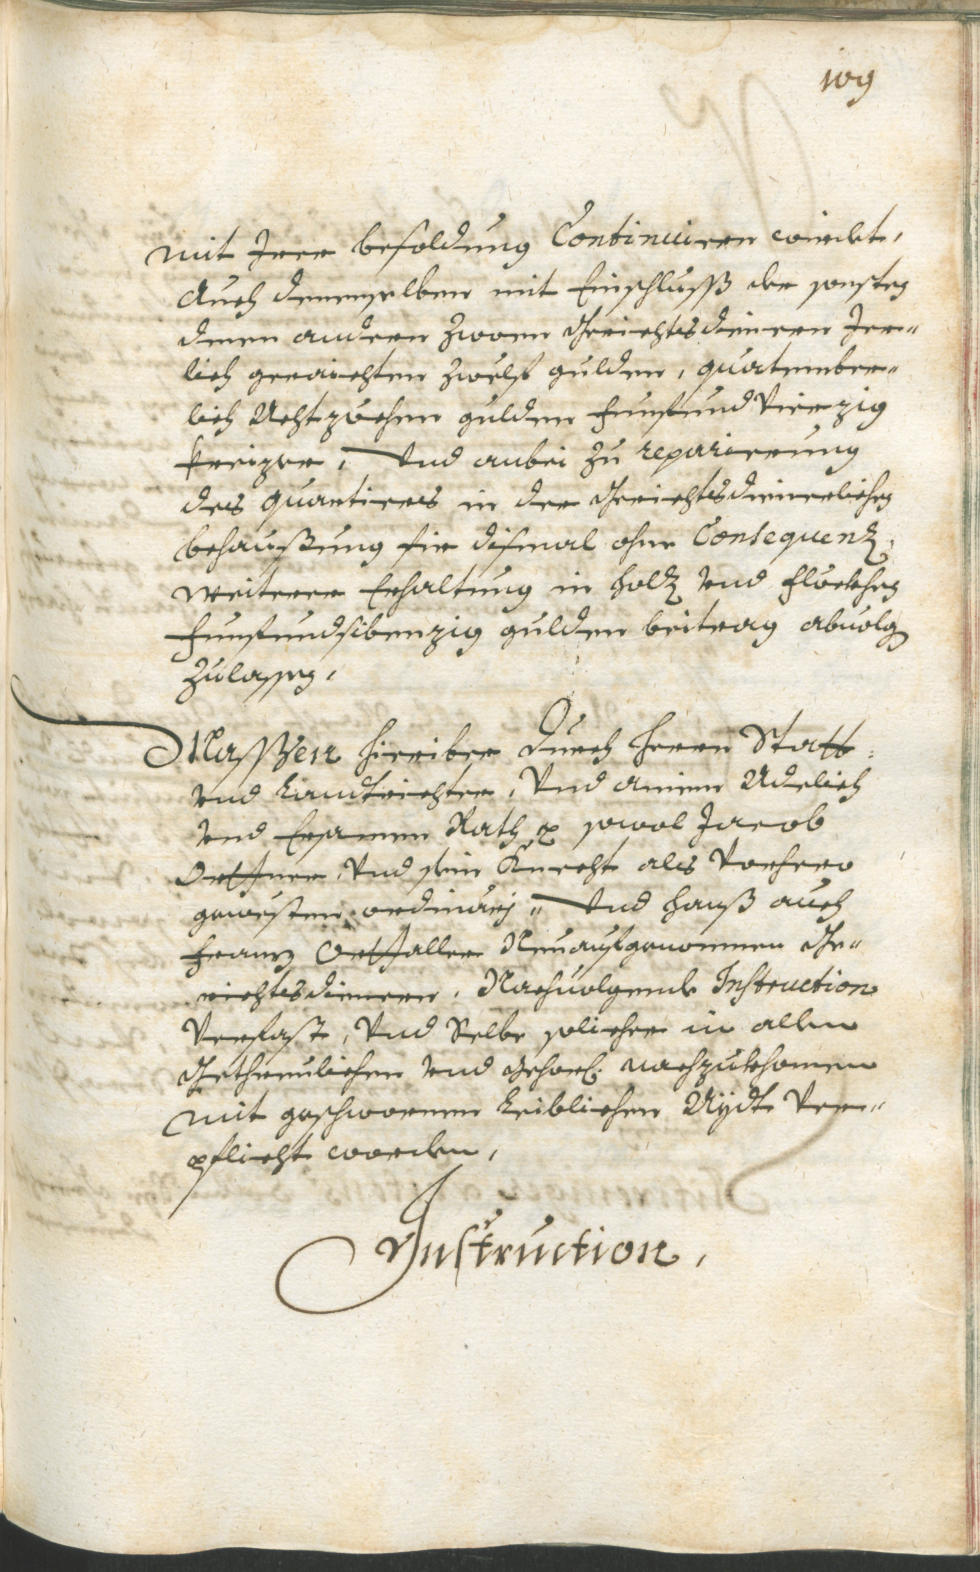 109
mit Irer besoldung Continuiren würdet,
Auch denenselben mit Einschluss der sonsten
denen andern zween Gerichtsdienern Jer„
lich geraichten zwelf gulden, quatember„
lich Achtzechen gulden funfundvierzig
kreizer, Vnd anbei zu reparierung
des quartiers in der Gerichtsdienerlichen
behaußung für dismal ohne Consequenz,
weiterer Erhaltung in holz vnd
funfundsibenzig gulden beitrag abuolgen
zulassen,
Massen hierüber durch Herrn Statt
vnd Landtrichter, Vnd ainem Adelich
vnd Ersamen Rath sowol Jacob
Vnd sein Knecht als Vorhero
gewesten ordinarj„ Vnd hanß auch
franz Neuaufgenommen Ge„
richtsdienern, Nachuolgende Instruction
Verfast, Vnd Selbe solicher in allem
Getreulichen vnd gehors. nachzukhomen
mit geschwornem Leiblichen Aijdt Ver„
pflicht worden,
Instruction,